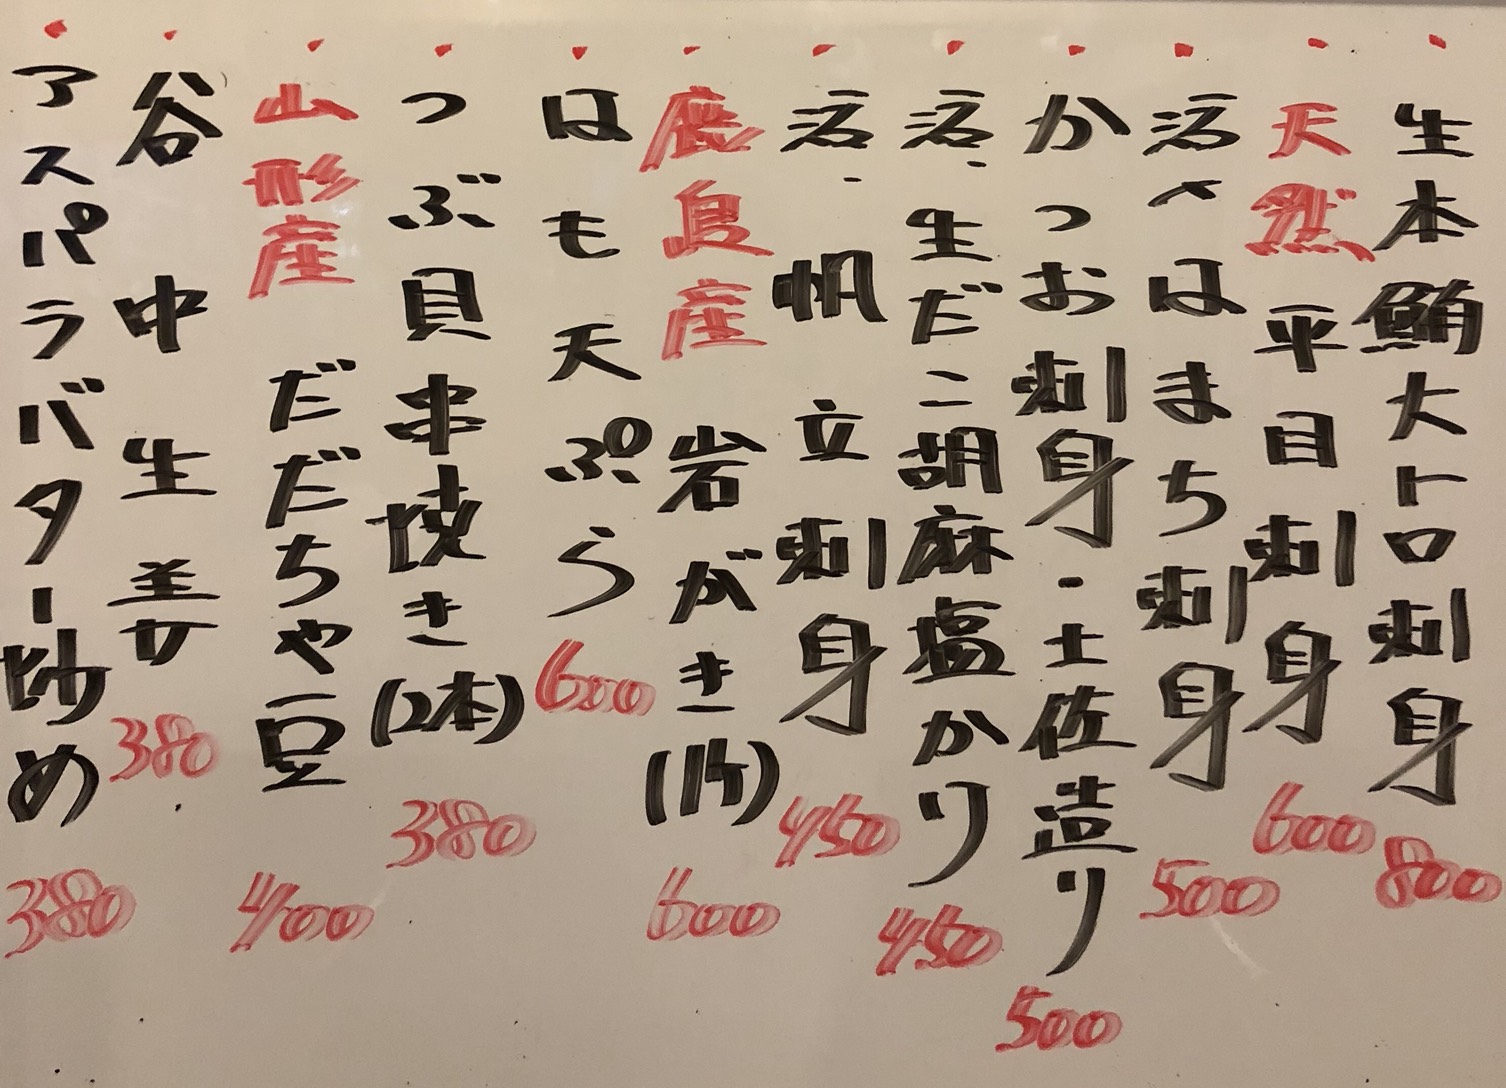 ・生本鮪大トロ刺身 800
・天然 平目刺身 600
・活〆はまち刺身 500
・かつお刺身・土佐造り 500
・活、生だこ胡麻塩かり 450
・活、帆立刺身 450
・鹿島産 岩がき(1ヶ) 600
・はも天ぷら 600
・つぶ貝串焼き(2本) 380
・山形産 だだちゃ豆 400
・谷中生姜 380
・アスパラバター炒め 380